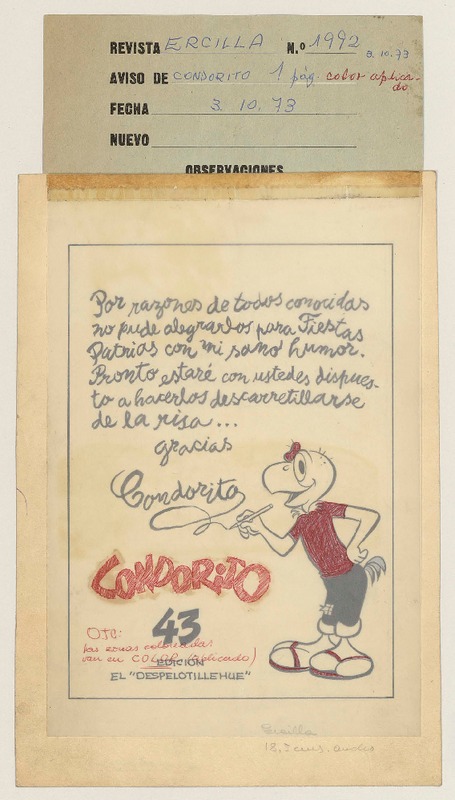 REVISTA ERCILLA N.º 1992 3.10.73
AVISO DE CONDORITO 1 pág. color aplica-
do
FECHA 3. 10. 73
NUEVO
OBSERVACIONES
Por razones de todos conocidas
no pude alegrarlos para Fiestas
Patrias con mi sano humor.
Pronto estaré con ustedes dispues-
to a hacerlos descarretillarse
de la risa...
gracias
Condorito
CONDORITO
43
OJO:
las zonas coloreadas
van en COLOR (aplicado)
EDICIÓN
EL "DESPELOTILLEHUE"
Ercilla